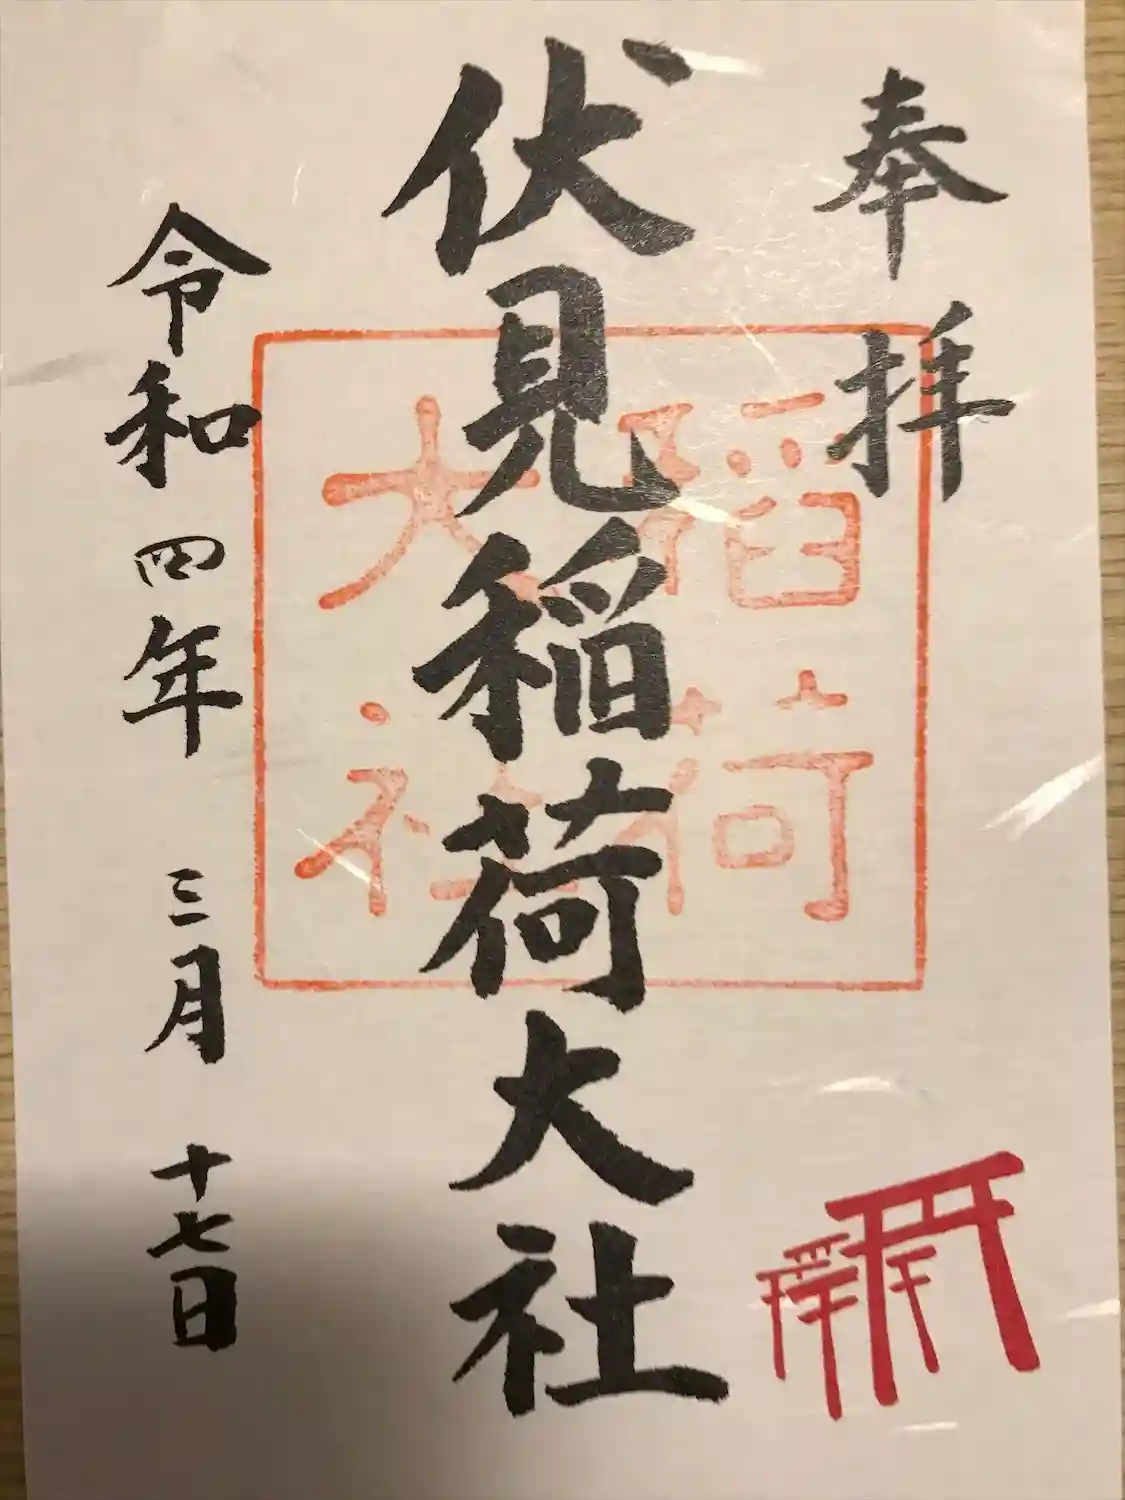 奉拝
伏見稲荷大社
稲荷
大社
令和四年三月十七日